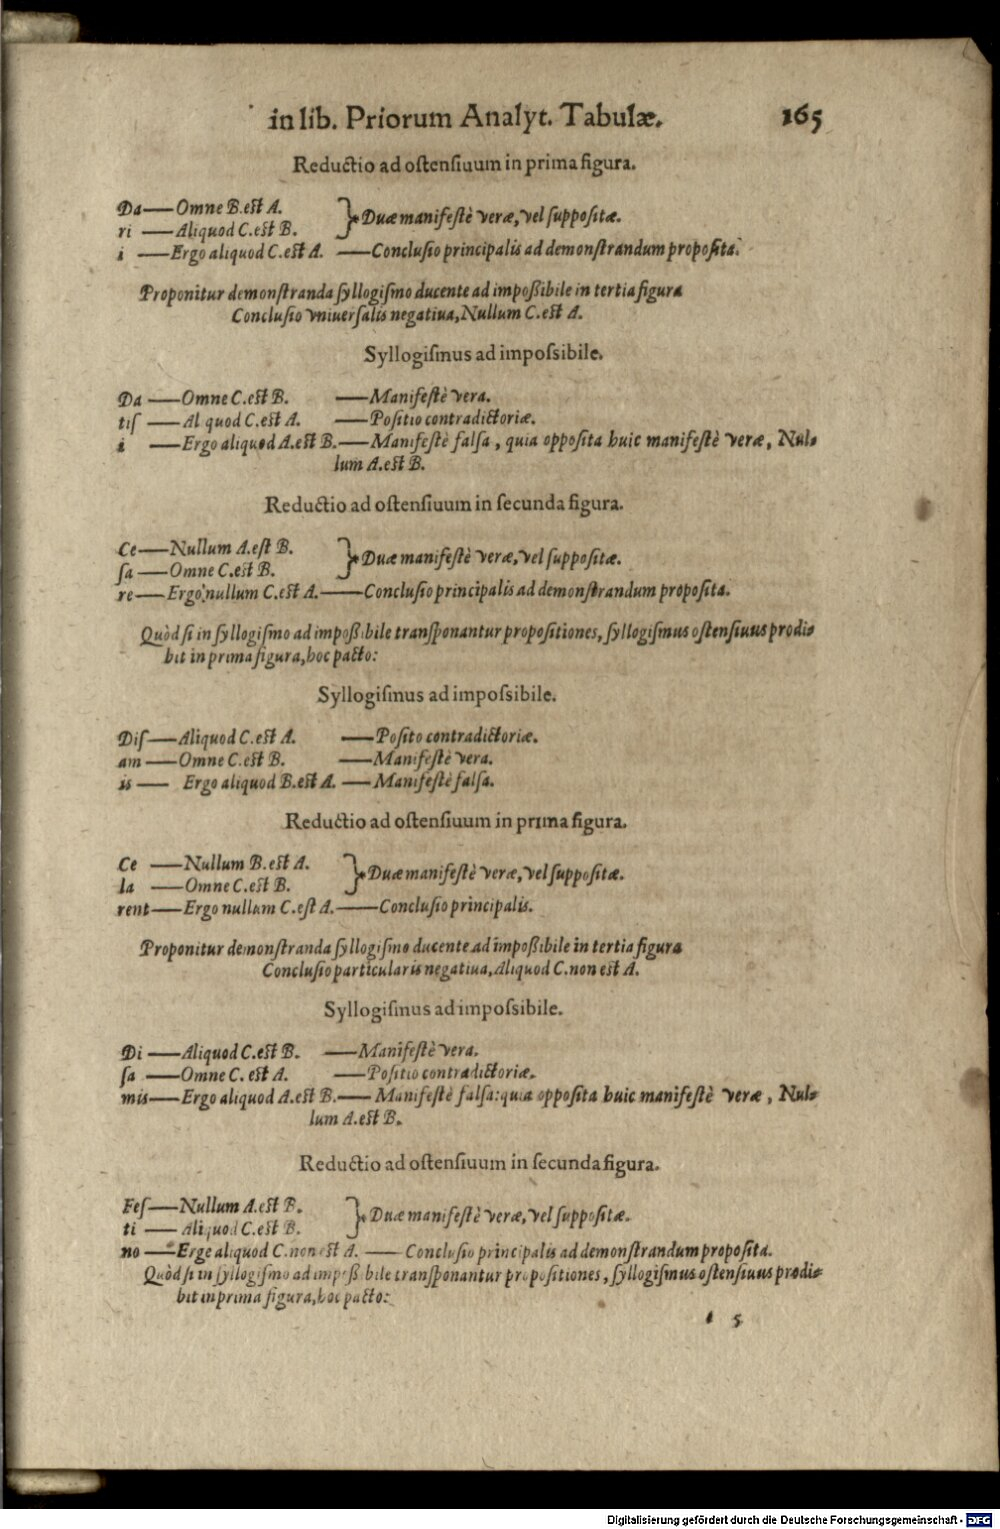 in lib. Priorum Analyt. Tabulæ. 165
Reductio ad ostensiuum in prima figura.
Da—Omne B.est A. } Duæ manifestè veræ, vel suppositæ.
ri —Aliquod C.est B.
i —Ergo aliquod C.est A. —Conclusio principalis ad demonstrandum proposita.
Proponitur demonstranda syllogismo ducente ad impoßibile in tertia figura
Conclusio vniuersalis negatiua, Nullum C.est A.
Syllogismus ad impossibile.
Da —Omne C.est B. —Manifestè vera.
tis —Al quod C.est A. —Positio contradictoriæ.
i —Ergo aliquod A.est B.—Manifestè falsa, quia opposita huic manifestè veræ, Nul-
lum A.est B.
Reductio ad ostensiuum in secunda figura.
Ce—Nullum A.est B. } Duæ manifestè veræ, vel suppositæ.
sa —Omne C.est B.
re—Ergo nullum C.est A.—Conclusio principalis ad demonstrandum proposita.
Quòd si in syllogismo ad impoßibile transponantur propositiones, syllogismus ostensiuus prodi-
bit in prima figura, hoc pacto:
Syllogismus ad impossibile.
Dis—Aliquod C.est A. —Posito contradictoriæ.
am —Omne C.est B. —Manifestè vera.
is — Ergo aliquod B.est A. —Manifestè falsa.
Reductio ad ostensiuum in prima figura.
Ce —Nullum B.est A. } Duæ manifestè veræ, vel suppositæ.
la —Omne C.est B.
rent—Ergo nullum C.est A.—Conclusio principalis.
Proponitur demonstranda syllogismo ducente ad impoßibile in tertia figura
Conclusio particularis negatiua, Aliquod C.non est A.
Syllogismus ad impossibile.
Di —Aliquod C.est B. —Manifestè vera.
sa —Omne C. est A. —Positio contradictoriæ.
mis—Ergo aliquod A.est B.— Manifestè falsa: quia opposita huic manifestè veræ, Nul-
lum A.est B.
Reductio ad ostensiuum in secunda figura.
Fes—Nullum A.est B. } Duæ manifestè veræ, vel suppositæ.
ti — Aliquod C.est B.
no —Erge aliquod C.non est A. — Conclusio principalis ad demonstrandum proposita.
Quòd si in syllogismo ad impoßibile transponantur propositiones, syllogismus ostensiuus prodi-
bit in prima figura, hoc pacto:
5
Digitalisierung gefördert durch die Deutsche Forschungsgemeinschaft - DFG